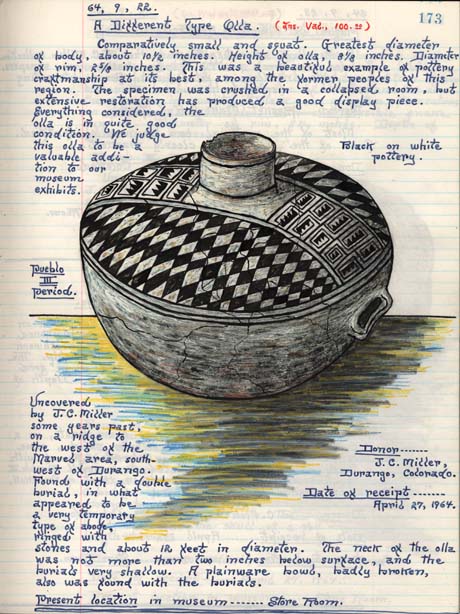 64, 9, 22.
173
A Different Type Olla. (Ins. Val., 100.00)
Comparatively small and squat. Greatest diameter
of body, about 10½ inches. Height of olla, inches. Diameter
of rim, inches. This, was a beautiful example of pottery
craftmanship at its best, among the former peoples of this
region. The specimen was crushed in a collapsed room, but
extensive restoration has produced a good display piece.
Everything considered, the
olla is in quite good
condition. We judge
this olla to be a
valuable addi-
tion to our
museum
exhibits.
Black on white
pottery.
Pueblo
III
Period.
Uncovered
by J.C. Miller
some years past,
on a ridge to
the west of the
Marvel area, south-
west of Durango.
Found with a double
burial, in what
appeared to be
a very temporary
type of abode,
ringed with
stones and about 12 feet in diameter. The neck of the olla
was not more than two inches below surface, and the
burials very shallow. A plainware bowl, badly broken,
also was found with the burials.
Donor------
J.C. Miller,
Durango, Colorado.
Date of receipt-------
April 27, 1964.
Present location in museum------- Store Room.